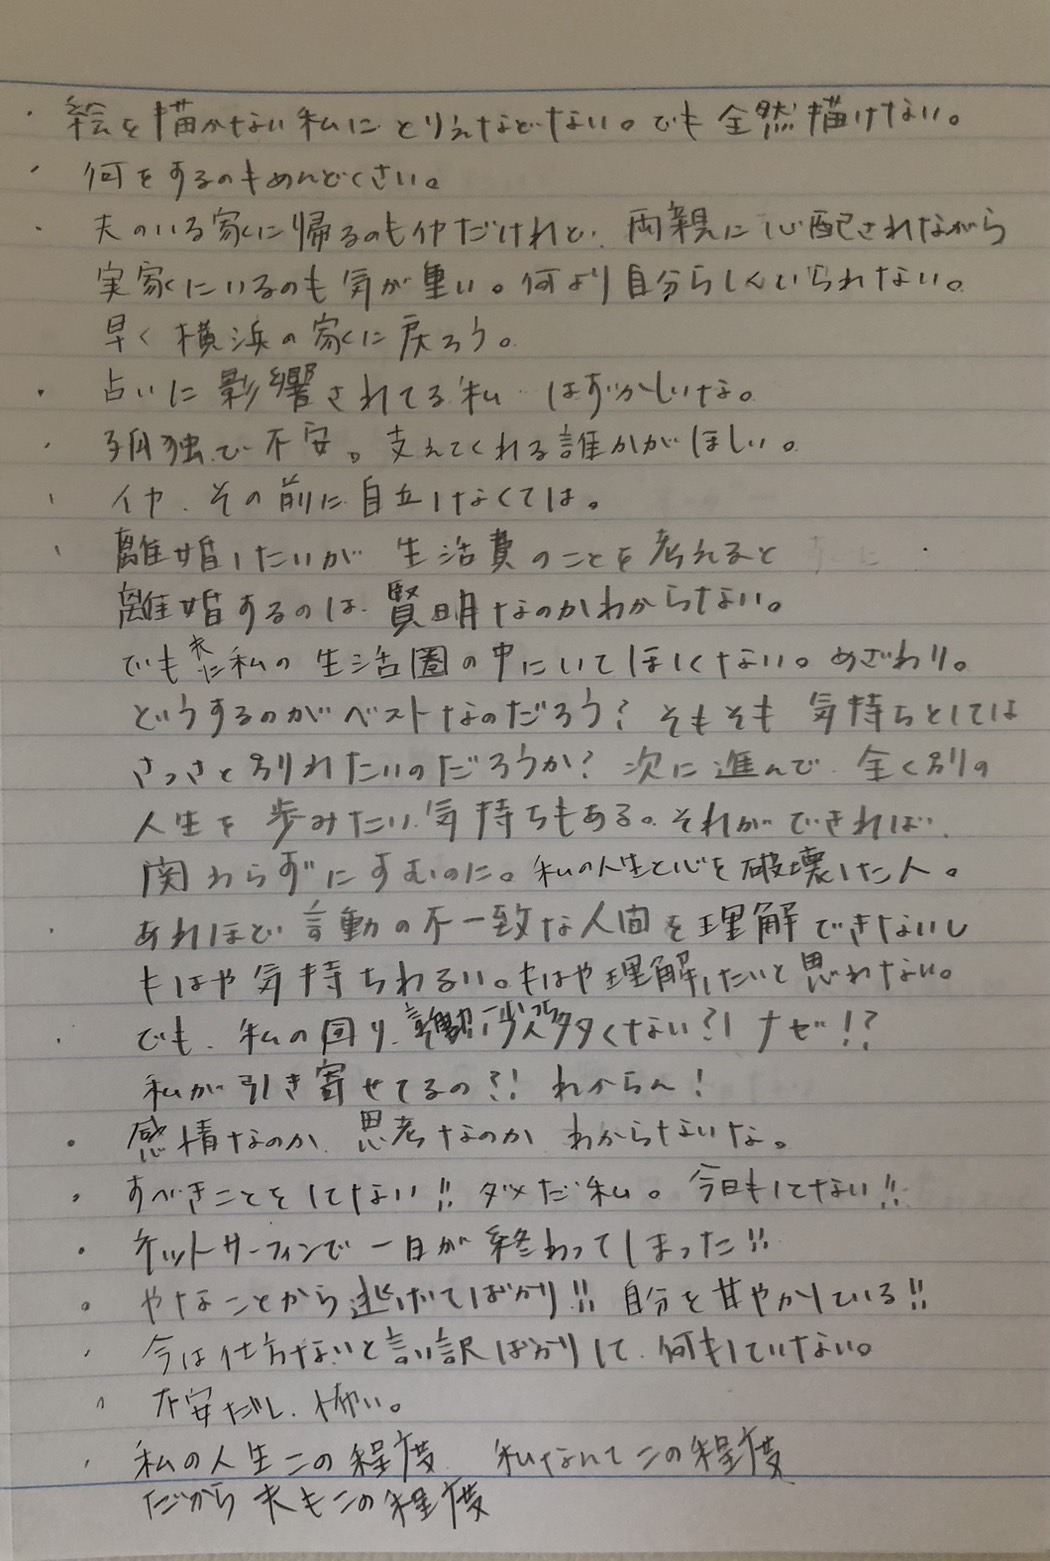 ・絵を描かない私にとりえなどない。でも全然描けない。
・何をするのもめんどくさい。
・夫のいる家に帰るのもイヤだけれど、両親に心配されながら
実家にいるのも気が重い。何より自分らしくいられない。
早く横浜の家に戻ろう。
・占いに影響されてる私 はずかしいな。
・孤独で不安。支えてくれる誰かがほしい。
・イヤ、その前に自立しなくては。
・離婚したいが生活費のことを考えると
離婚するのは賢明なのかわからない。
でも夫に私の生活圏の中にいてほしくない。めざわり。
どうするのがベストなのだろう?そもそも気持ちとしては
さっさと別れたいのだろうか?次に進んで、全く別の
人生を歩みたい気持ちもある。それができれば、
関わらずにすむのに。私の人生と心を破壊した人。
・あれほど言動の不一致な人間を理解できないし
もはや気持ちわるい。もはや理解したいと思わない。
・でも、私の回り、多くない?! ナゼ!?
私が引き寄せてるの?! わからん!
・感情なのか、思考なのかわからないな。
・すべきことをしてない!! ダメだ私。今日もしてない!!
・ネットサーフィンで一日が終わってしまった!!
・やなことから逃げてばかり!! 自分を甘やかしている!!
・今は仕方ないと言い訳ばかりして、何もしていない。
・不安だし、怖い。
・私の人生この程度 私なんてこの程度
だから夫もこの程度